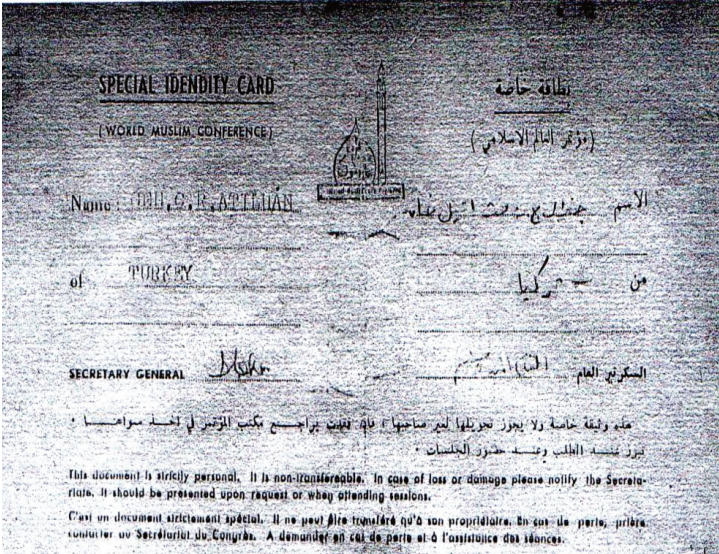 SPECIAL IDENDITY CARD
(WORLD MUSLIM CONFERENCE)
Name : C. R. ATILHAN
of TURKEY
SECRETARY GENERAL
بطاقة خاصة
(مؤتمر العالم الاسلامي)
الاسم جنرال
من تركيا
السكرتير العام
هذه وثيقة خاصة ولا يجوز تحويلها لغير صاحبها ، فان فقدت يراجع مكتب المؤتمر في اخذ سواها .
تبرز عند الطلب وعند حضور الجلسات .
This document is strictly personal. It is non-transfereable. In case of loss or damage please notify the Secreta-
riate. It should be presented upon request or when attending sessions.
C'est un document strictement spécial. Il ne peut être transféré qu'à son propriétaire. En cas de perte, prière
contacter au Secrétariat du Congrès. A demander en cas de perte et à l'assistance des séances.